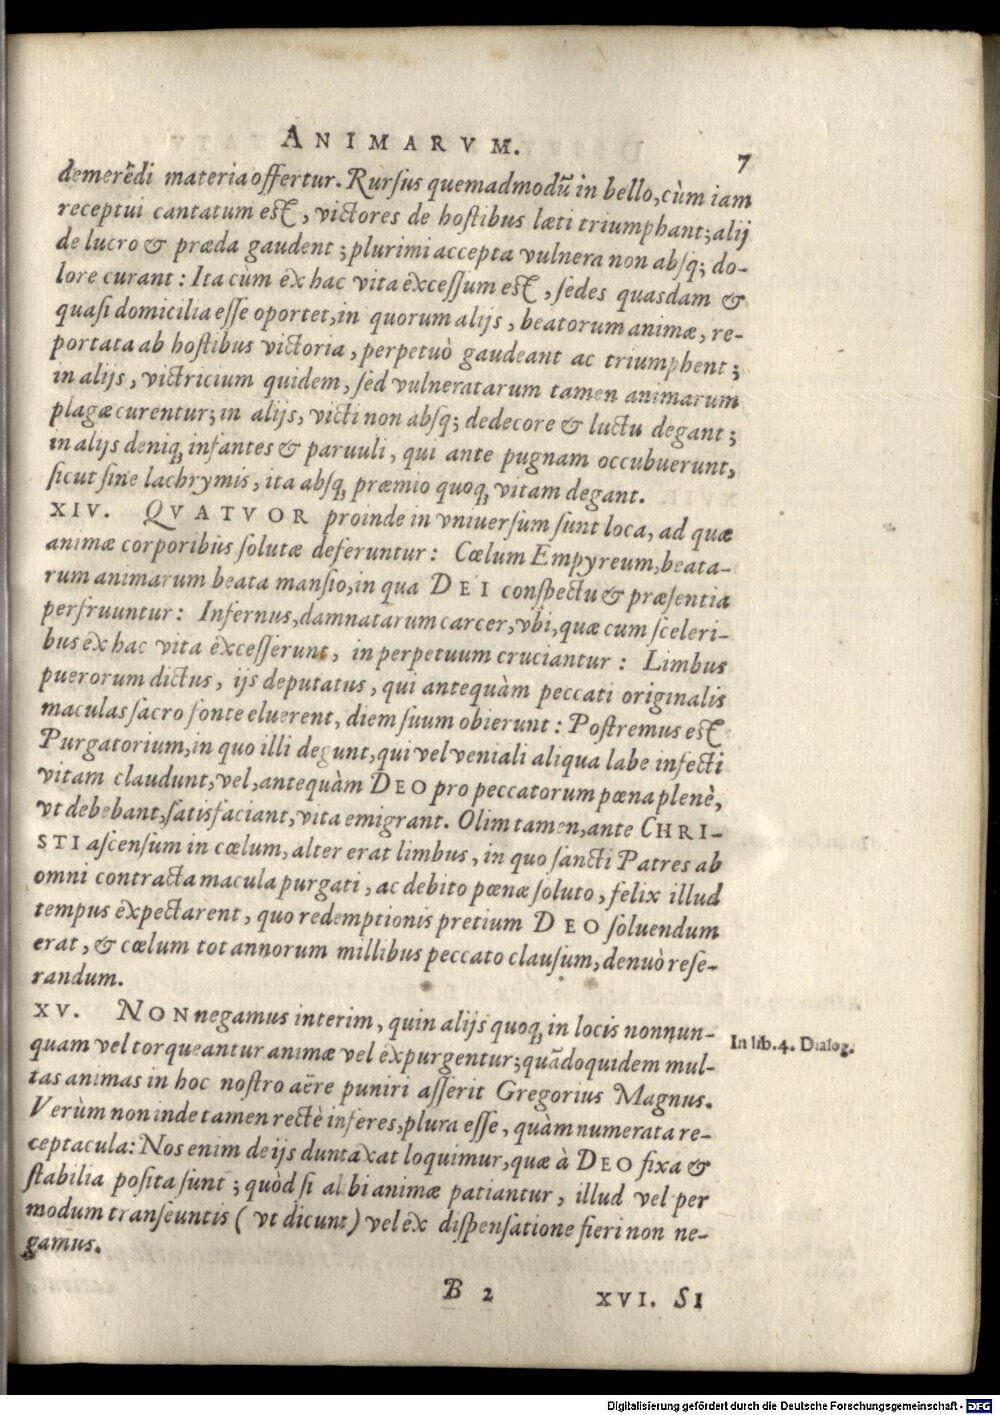 ANIMARVM. 7
demerēdi materia offertur. Rursus quemadmodū in bello, cùm iam
receptui cantatum est, victores de hostibus læti triumphant; alij
de lucro & præda gaudent; plurimi accepta vulnera non absq; do-
lore curant: Ita cùm ex hac vita excessum est, sedes quasdam &
quasi domicilia esse oportet, in quorum alijs, beatorum animæ, re-
portata ab hostibus victoria, perpetuò gaudeant ac triumphent;
in alijs, victricium quidem, sed vulneratarum tamen animarum
plagæ curentur; in alijs, victi non absq; dedecore & luctu degant;
in alijs deniq; infantes & paruuli, qui ante pugnam occubuerunt,
sicut sine lachrymis, ita absq; præmio quoq; vitam degant.
XIV. QVATVOR proinde in vniuersum sunt loca, ad quæ
animæ corporibus solutæ deferuntur: Cœlum Empyreum, beata-
rum animarum beata mansio, in qua DEI conspectu & præsentia
perfruuntur: Infernus, damnatarum carcer, vbi, quæ cum sceleri-
bus ex hac vita excesserunt, in perpetuum cruciantur: Limbus
puerorum dictus, ijs deputatus, qui antequàm peccati originalis
maculas sacro fonte eluerent, diem suum obierunt: Postremus est
Purgatorium, in quo illi degunt, qui vel veniali aliqua labe infecti
vitam claudunt, vel, antequàm DEO pro peccatorum pœna plenè,
vt debebant, satisfaciant, vita emigrant. Olim tamen, ante CHRI-
STI ascensum in cœlum, alter erat limbus, in quo sancti Patres ab
omni contracta macula purgati, ac debito pœnæ soluto, felix illud
tempus expectarent, quo redemptionis pretium DEO soluendum
erat, & cœlum tot annorum millibus peccato clausum, denuò rese-
randum.
XV. NON negamus interim, quin alijs quoq; in locis nonnun-
quam vel torqueantur animæ vel expurgentur; quādoquidem mul-
tas animas in hoc nostro aëre puniri asserit Gregorius Magnus.
In lib. 4. Dialog.
Verùm non inde tamen rectè inferes, plura esse, quàm numerata re-
ceptacula: Nos enim de ijs duntaxat loquimur, quæ à DEO fixa &
stabilia posita sunt; quòd si alibi animæ patiantur, illud vel per
modum transeuntis (vt dicunt) vel ex dispensatione fieri non ne-
gamus.
B 2 XVI. SI
Digitalisierung gefördert durch die Deutsche Forschungsgemeinschaft - DFG